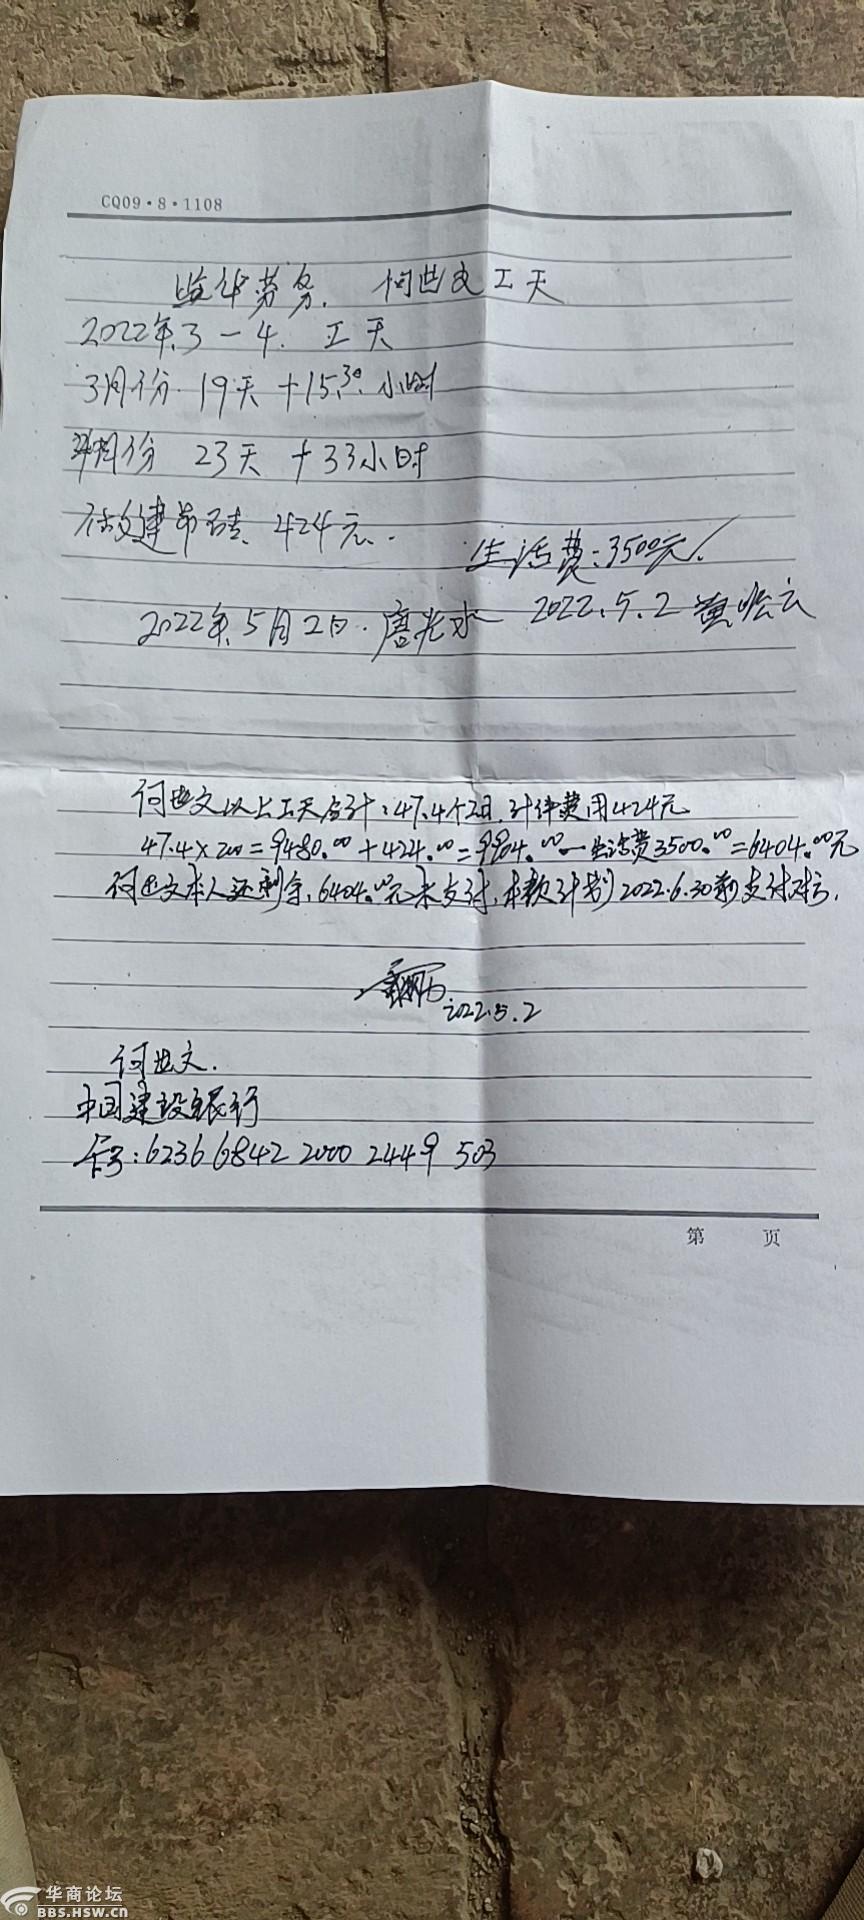 CQ09·8·1108
华劳务. 何世文工天
2022年.3-4. 工天
3月份.19天+15.30小时
4月份 23天+33小时
424元.
生活费:3500元
2022年.5月2日.唐光
2022.5.2 黄
何世文以上工天合计:47.4个工日,计件费用424元
47.4×200=9480.00+424.00=9904.00-生活费3500.00=6404.00元
何世文本人还剩余,6404.00元未支付,本款计划2022.6.30前支付
2022.5.2
何世文.
中国建设银行
卡号:6236 6842 2000 2449 503
第 页
华商论坛
BBS.HSW.CN